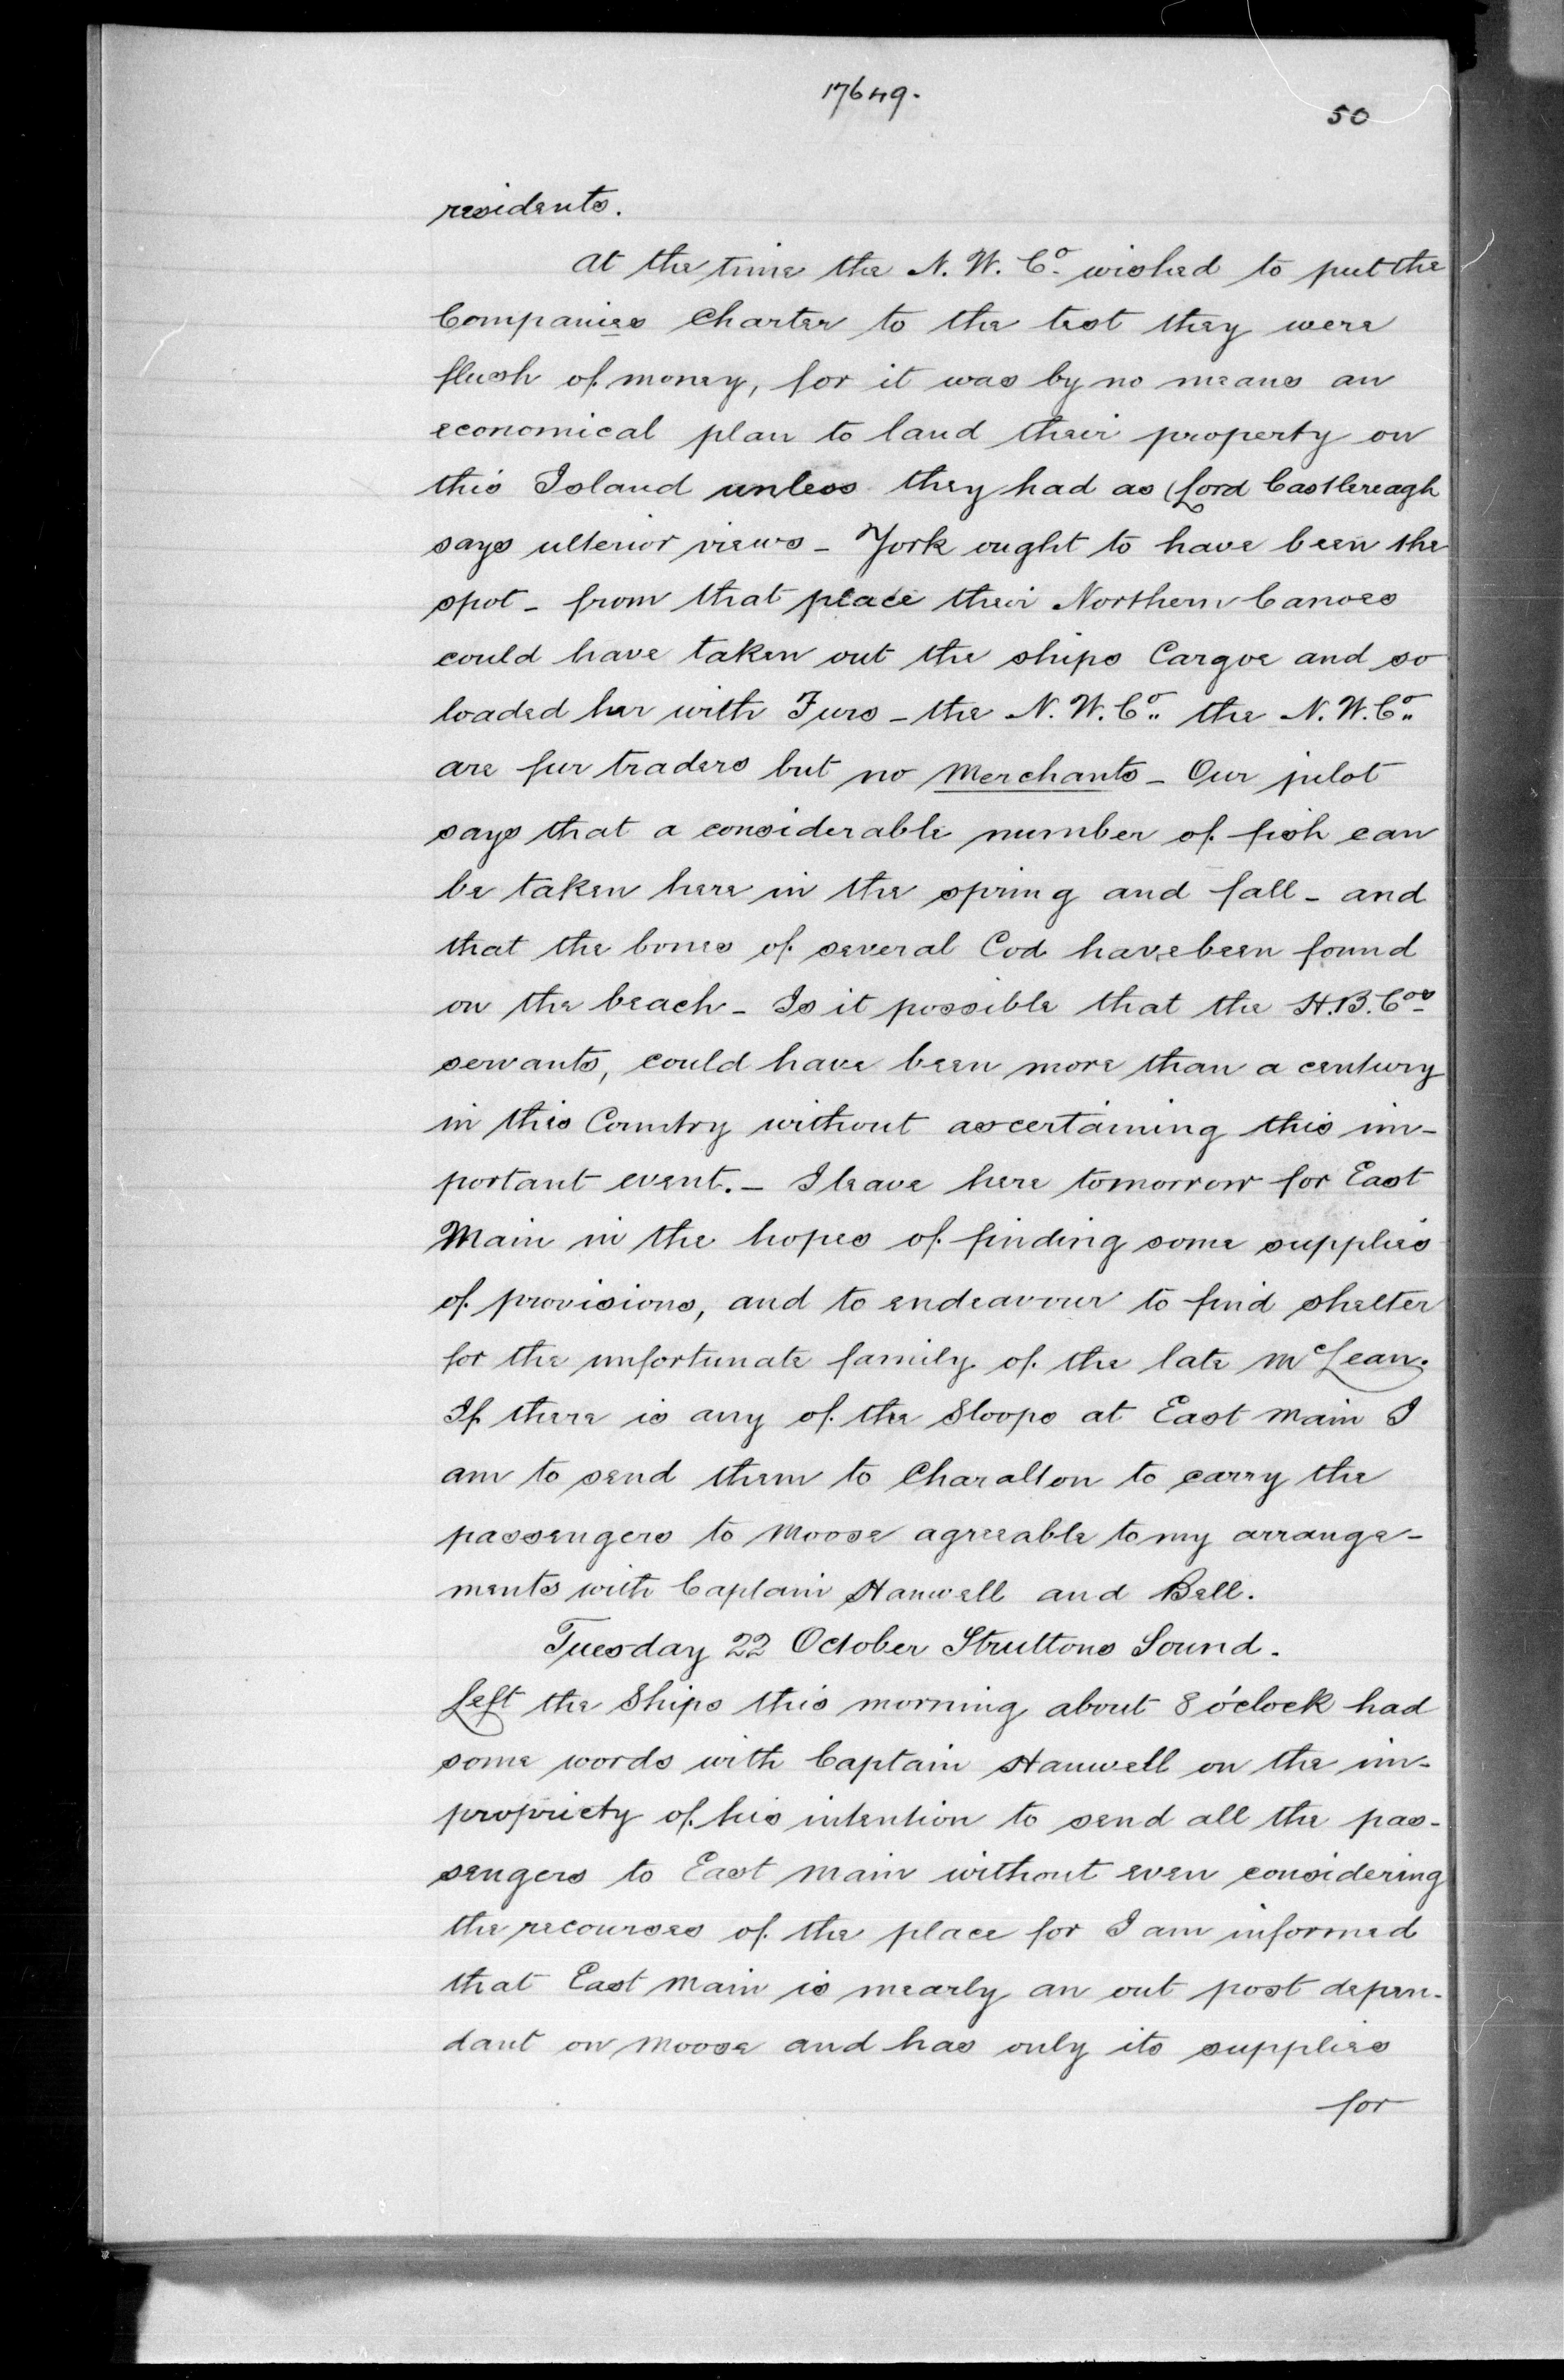 17649.
50
residents.
At the time the N. W. Co. wished to put the
Companies Charter to the test they were
flush of money, for it was by no means an
economical plan to land their property on
this Island unless they had as Lord Castlereagh
says ulterior views - York ought to have been the
spot - from that place their Northern Canoes
could have taken out the ships Cargoe and so
loaded her with Furs - the N. W. Co. the N. W. Co.
are fur traders but no Merchants - Our pilot
says that a considerable number of fish can
be taken here in the spring and fall - and
that the bones of several Cod have been found
on the beach - Is it possible that the H. B. Cos
servants, could have been more than a century
in this Country without ascertaining this im-
portant event. - I leave here tomorrow for East
Main in the hopes of finding some supplies
of provisions, and to endeavour to find shelter
for the unfortunate family of the late McLean.
If there is any of the Sloops at East Main I
am to send them to Charalton to carry the
passengers to Moose agreeable to my arrange-
ments with Captain Hanwell and Bell.
Tuesday 22 October Struttons Sound.
Left the Ships this morning about 8 o'clock had
some words with Captain Hanwell on the im-
propriety of his intention to send all the pas-
sengers to East Main without even considering
the recourses of the place for I am informed
that East Main is mearly an out post depen-
dant on Moose and has only its supplies
for